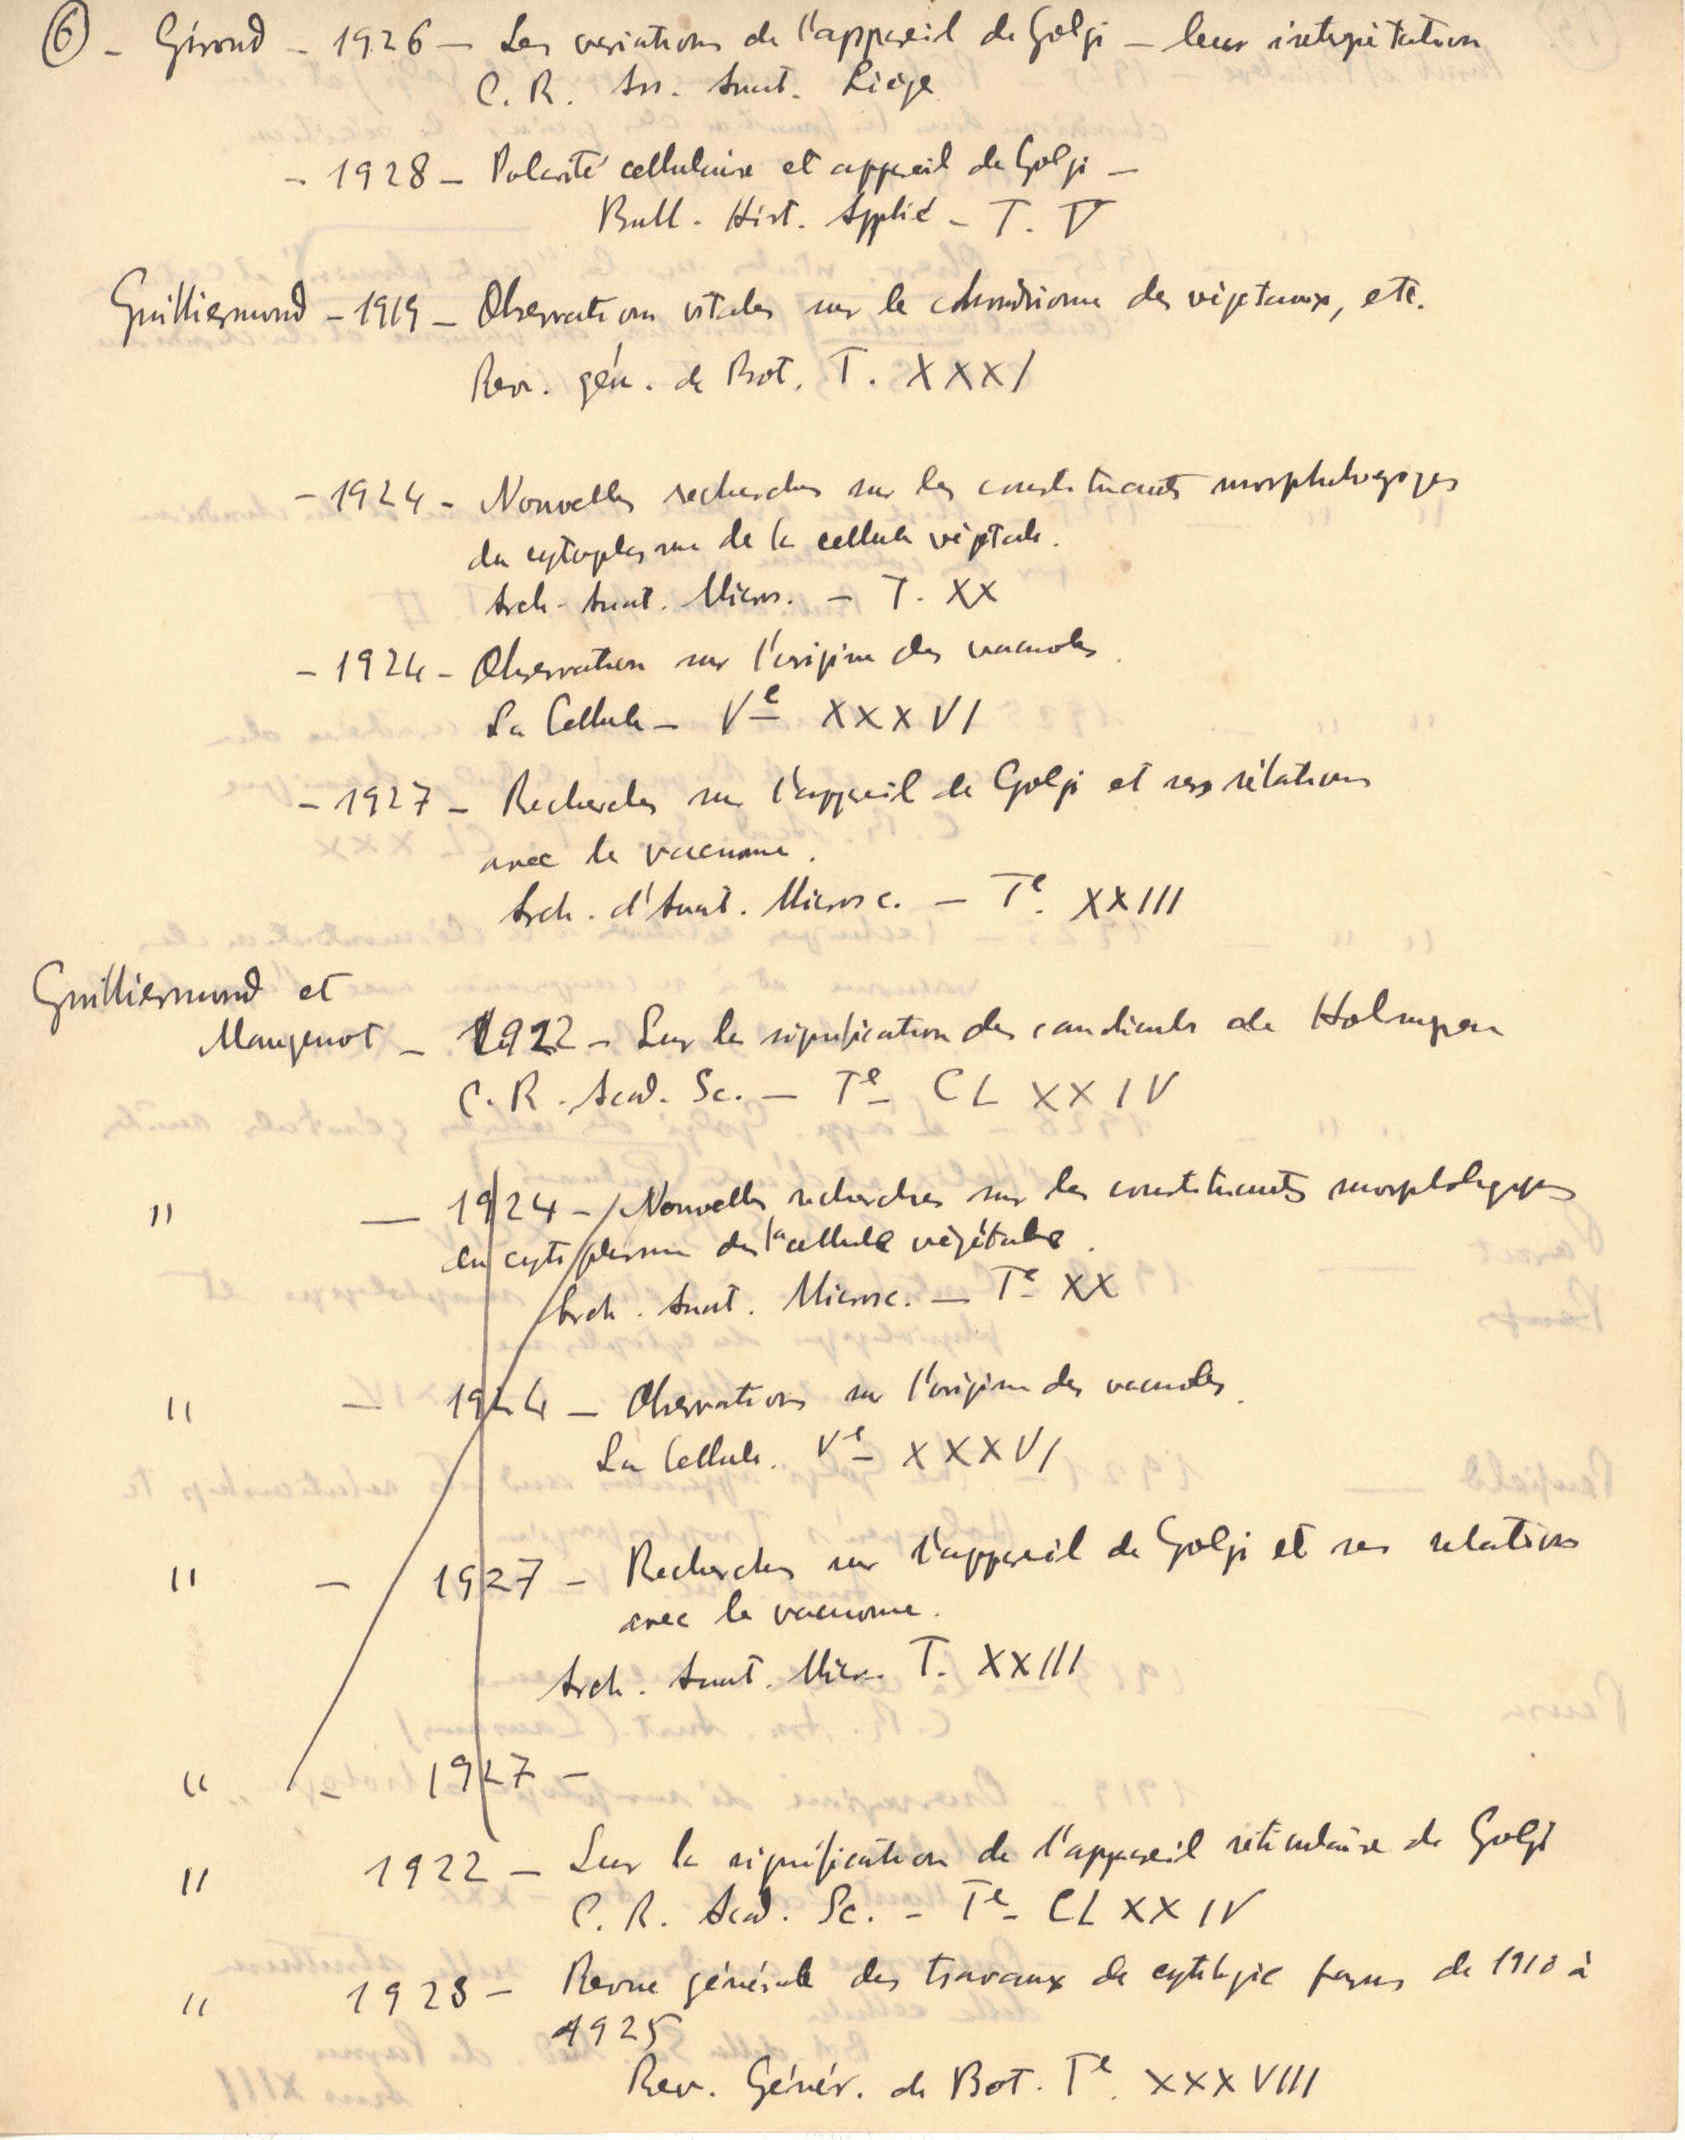 6 - Giroud - 1926 - Les variations de l'appareil de Golgi - leur interprétation
C. R. Ass. Anat. Liège
- 1928 - Polarité cellulaire et appareil de Golgi -
Bull. Hist. Applié - T. V
Guilliermond - 1919 - Observations vitales sur le chondriome des végétaux, etc.
Rev. gén. de Bot. T. XXXI
- 1924 - Nouvelles recherches sur les constituants morphologiques
du cytoplasme de la cellule végétale.
Arch. Anat. Micros. - T. XX
- 1924 - Observation sur l'origine des vacuoles.
La Cellule - Ve XXXVI
- 1927 - Recherches sur l'appareil de Golgi et ses rélations
avec le vacuome.
Arch. d'Anat. Microsc. - Te. XXIII
Guilliermond et
Mangenot - 1922 - Sur la signification des canalicules de Holmgren
C. R. Acad. Sc. - Te CLXXIV
" - 1924 - Nouvelles recherches sur les constituants morphologiques
du cytoplasme de la cellule végétale.
Arch. Anat. Microsc. - Te XX
" - 1924 - Observations sur l'origine des vacuoles.
La Cellule. Ve XXXVI
" - 1927 - Recherches sur l'appareil de Golgi et ses relations
avec le vacuome.
Arch. Anat. Micr. T. XXIII
" - 1927 -
" 1922 - Sur la signification de l'appareil réticulaire de Golgi
C. R. Acad. Sc. - Te - CLXXIV
" 1928 - Revue générale des travaux de cytologie parus de 1910 à
1925
Rev. Génér. de Bot. Te. XXXVIII